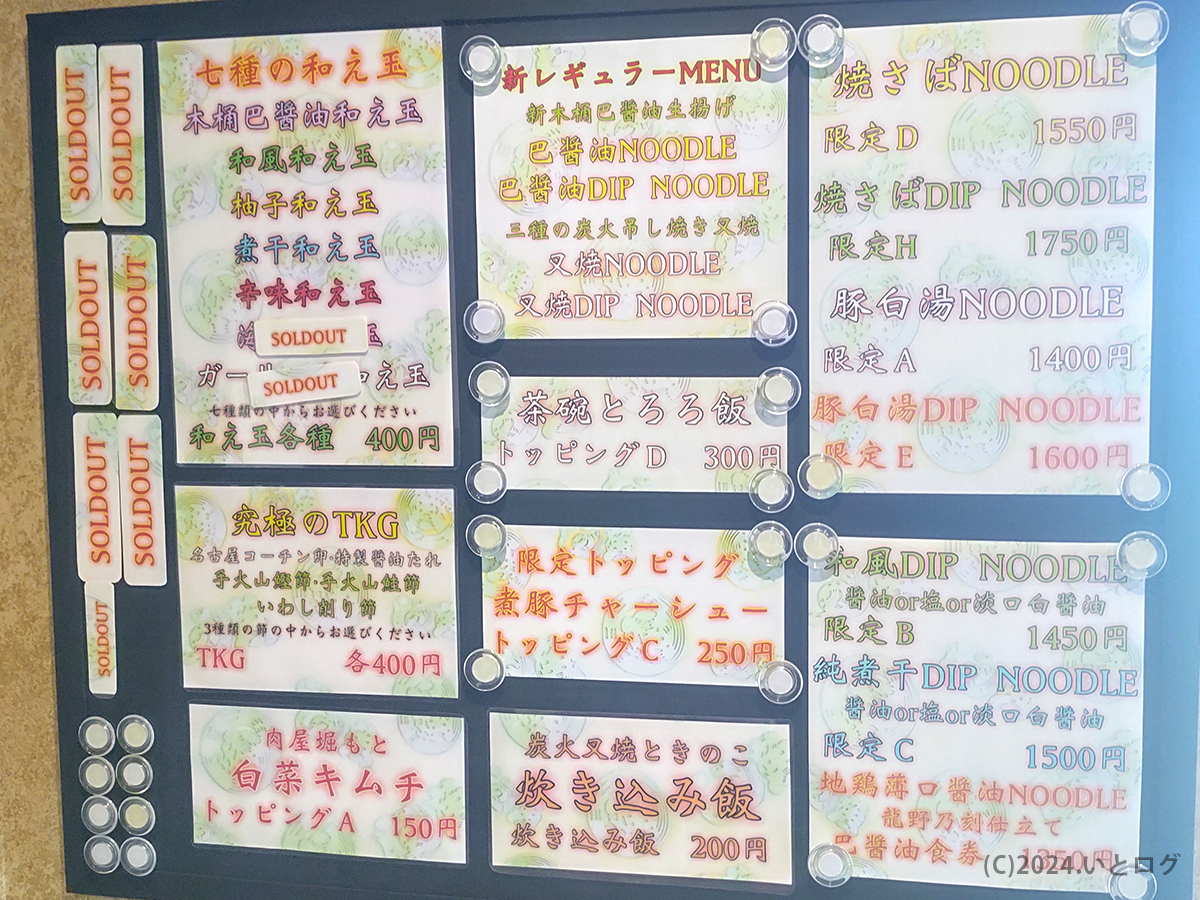 SOLDOUT
SOLDOUT
SOLDOUT
SOLDOUT
SOLDOUT
SOLDOUT
SOLDOUT
七種の和え玉
木桶巴醤油和え玉
和風和え玉
柚子和え玉
煮干和え玉
辛味和え玉
SOLDOUT 玉
ガー
SOLDOUT え玉
七種類の中からお選びください
和え玉各種 400円
究極のTKG
名古屋コーチン卵・特製醤油たれ
手火山鰹節・手火山鮭節
いわし削り節
3種類の節の中からお選びください
TKG 各400円
肉屋堀もと
白菜キムチ
トッピングA 150円
新レギュラーMENU
新木桶巴醤油生揚げ
巴醤油NOODLE
巴醤油DIP NOODLE
三種の炭火吊し焼き叉焼
叉焼NOODLE
叉焼DIP NOODLE
茶碗とろろ飯
トッピングD 300円
限定トッピング
煮豚チャーシュー
トッピングC 250円
炭火叉焼ときのこ
炊き込み飯
炊き込み飯 200円
焼さばNOODLE
限定D 1550円
焼さばDIP NOODLE
限定H 1750円
豚白湯NOODLE
限定A 1400円
豚白湯DIP NOODLE
限定E 1600円
和風DIP NOODLE
醤油or塩or淡口白醤油
限定B 1450円
純煮干DIP NOODLE
醤油or塩or淡口白醤油
限定C 1500円
地鶏薄口醤油NOODLE
龍野乃刻仕立て
巴醤油食券
(C)2024.いとログ